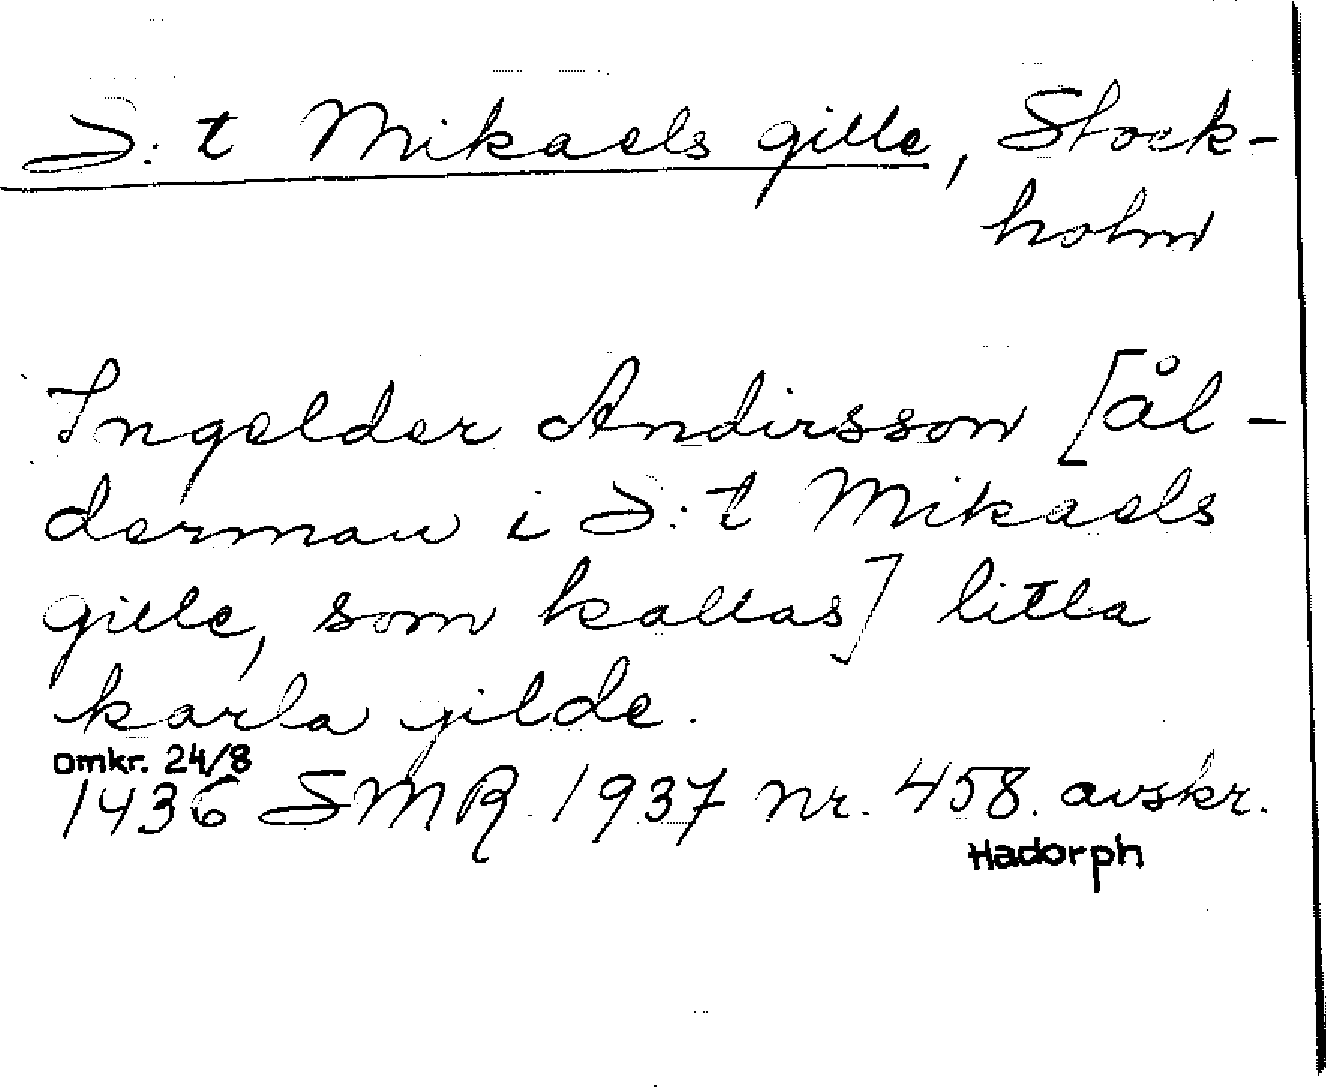 S:t Mikaels gille, Stock-
holm
Ingelder Andirsson [ål-
derman i S:t Mikaels
gille, som kallas] litla
karla gilde.
omkr. 24/8
1436 SMR 1937 nr. 458. avskr.
Hadorph